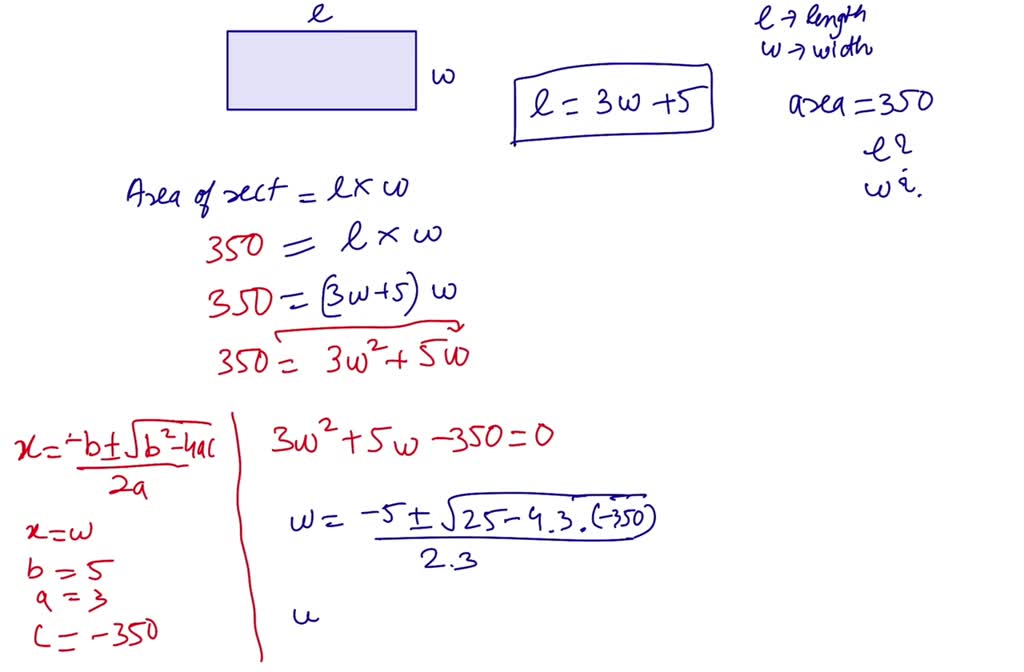 l
w
l = 3w + 5
l → length
w → width
area = 350
l?
w?
Area of rect = l × w
350 = l × w
350 = (3w+5) w
350 = 3w² + 5w
x = -b ± √b²-4ac / 2a
x = w
b = 5
a = 3
c = -350
3w² + 5w - 350 = 0
w = -5 ± √25 - 4.3.(-350) / 2.3